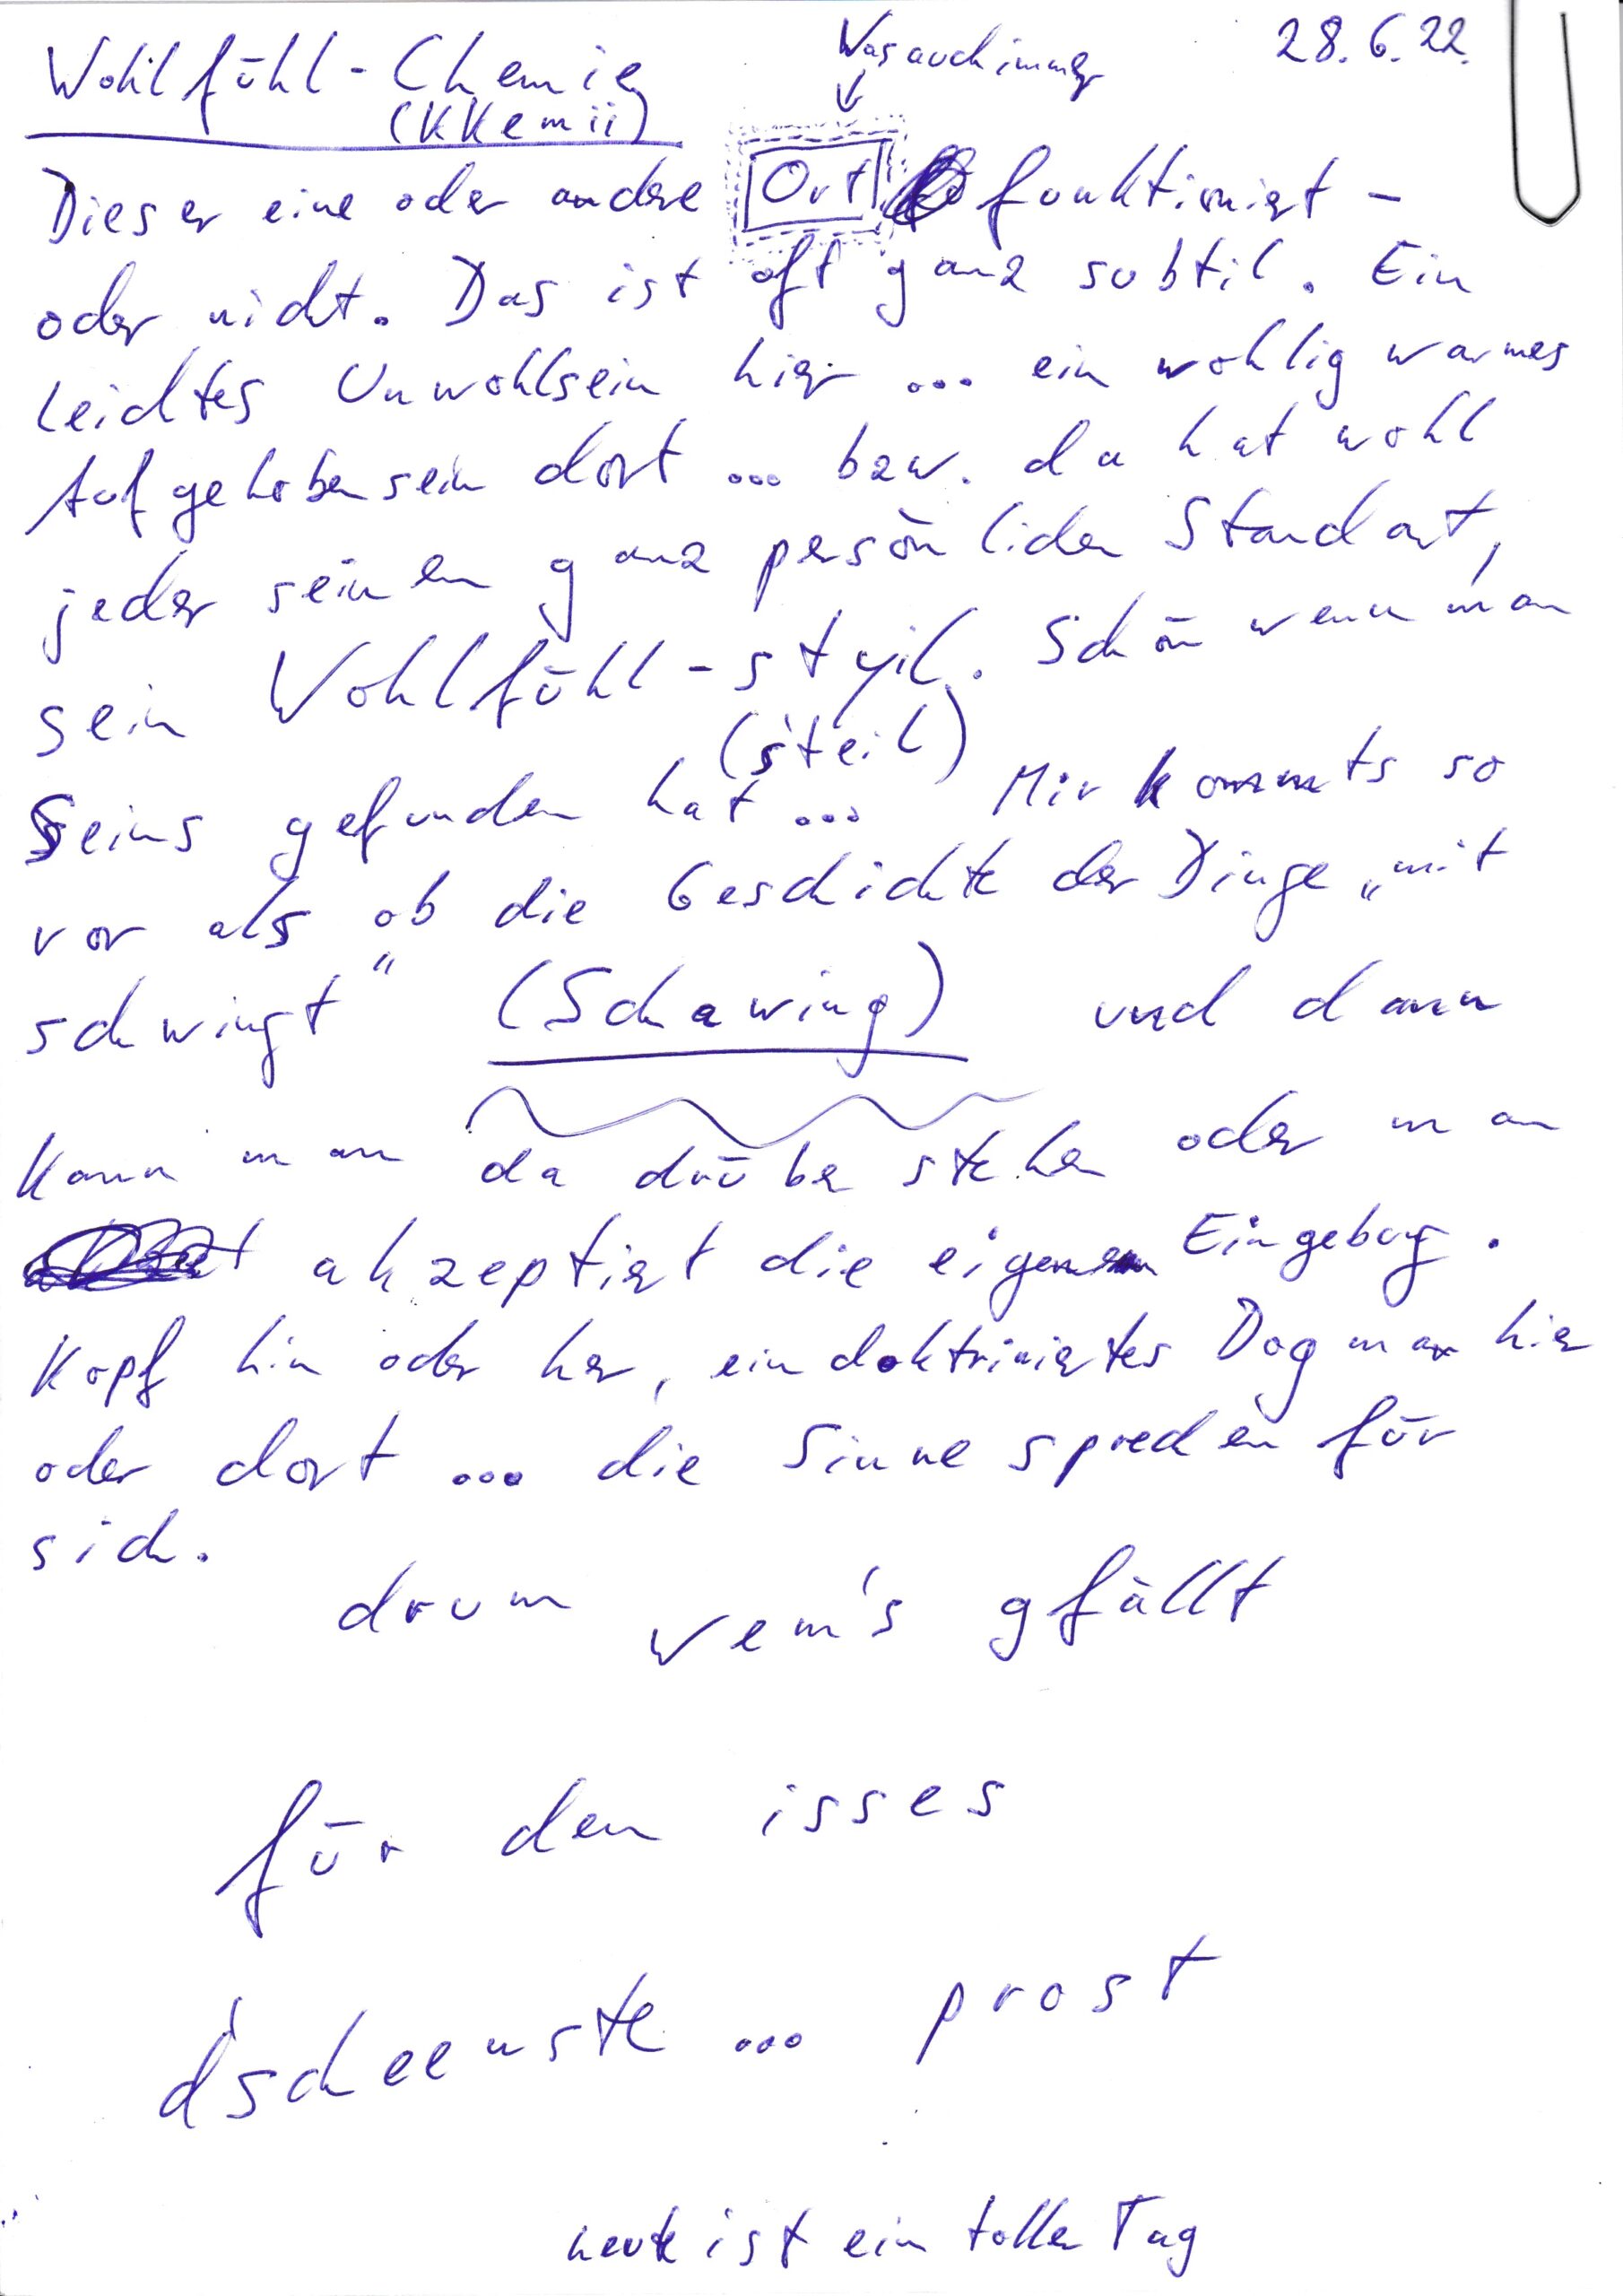 Wohlfühl-Chemie
(KKemii)
Wasauchimmer
28.6.22.
Dieser eine oder andere Ort funktioniert -
oder nicht. Das ist oft ganz subtil. Ein
leichtes Unwohlsein hier ... ein wohlig warmes
Aufgehobensein dort ... bzw. da hat wohl
jeder seinen ganz persönlichen Standart,
sein Wohlfühl-styil. Schön wenn man
(steil)
Seins gefunden hat ... Mir kommts so
vor als ob die Geschichte der Dinge „mit
schwingt" (Schawing) und dann
kann man da drüber stehen oder man
akzeptiert die eigenen Eingebung.
Kopf hin oder her, eindoktriniertes Dogmar hier
oder dort ... die Sinne sprechen für
sich.
drum wem's gfällt
für den isses
d'scheenste ... prost
heute ist ein toller Tag